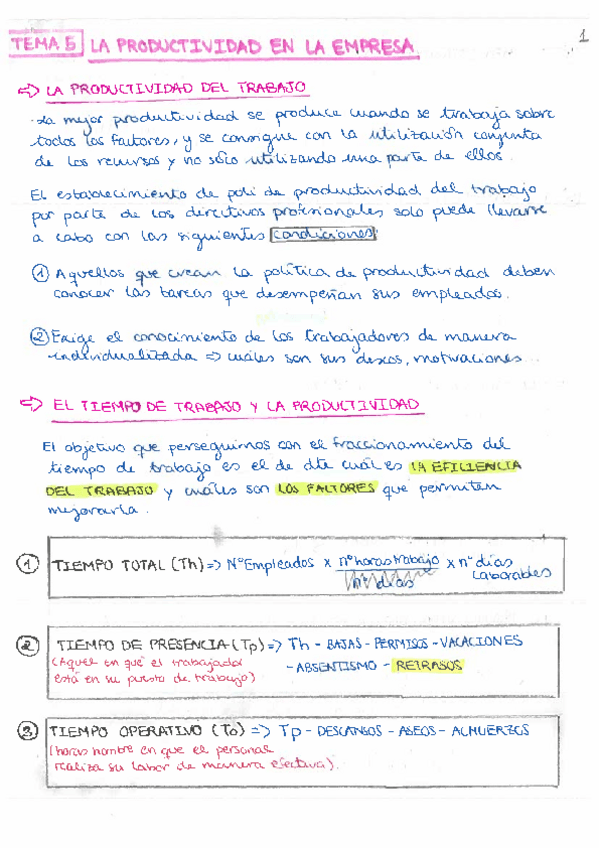 TEMA 5 LA PRODUCTIVIDAD EN LA EMPRESA
1
⇨ LA PRODUCTIVIDAD DEL TRABAJO
·La mejor productividad se produce cuando se trabaja sobre
todos los factores, y se consigue con la utilización conjunta
de los recursos y no sólo utilizando una parte de ellos.
El establecimiento de polí de productividad del trabajo
por parte de los directivos profesionales solo puede llevarse
a cabo con las siguientes condiciones:
① Aquellos que crean la política de productividad deben
conocer las tareas que desempeñan sus empleados.
② Exige el conocimiento de los trabajadores de manera
individualizada => cuáles son sus deseos, motivaciones...
⇨ EL TIEMPO DE TRABAJO Y LA PRODUCTIVIDAD
El objetivo que perseguimos con el fraccionamiento del
tiempo de trabajo es el de dte cuál es LA EFICIENCIA
DEL TRABAJO y cuáles son LOS FACTORES que permiten
mejorarla.
① TIEMPO TOTAL (Th) => NºEmpleados x nºhorastrabajo / nº días x nº días
Laborables
② TIEMPO DE PRESENCIA (Tp) => Th - BAJAS - PERMISOS - VACACIONES
(Aquel en que el trabajador - ABSENTISMO - RETRASOS
está en su puesto de trabajo)
③ TIEMPO OPERATIVO (To) => Tp - DESCANSOS - ASEOS - ALMUERZOS
(horas hombre en que el personal
realiza su labor de manera efectiva).